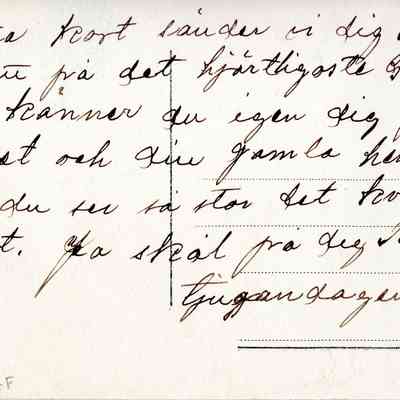 kort sänder vi dig
på det hjärtligaste
känner du igen dig
och din gamla
du ser så stor det
t. Ja skål på dig
tjugandagen
F